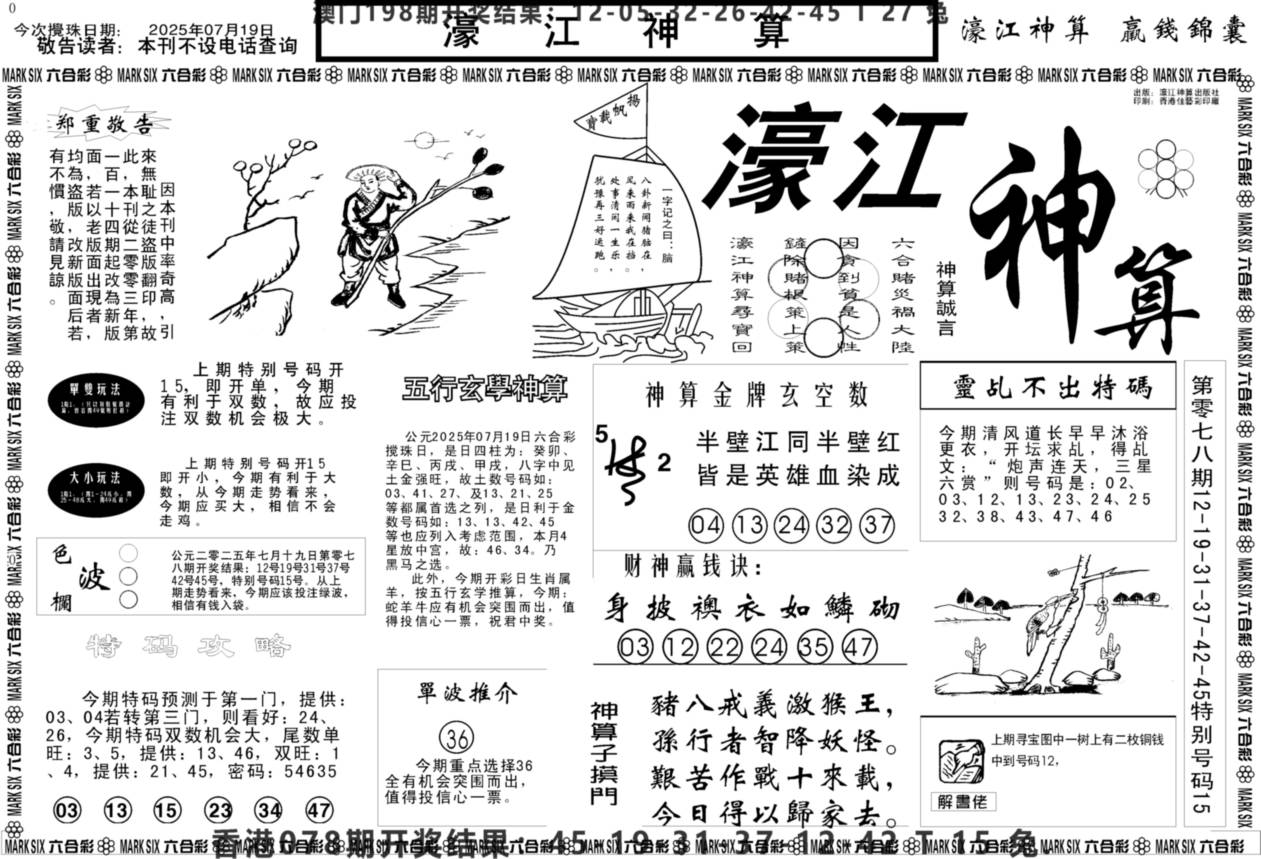 0
澳门198期开奖结果：12-05-32-26-42-45 T 27 兔
今次攪珠日期： 2025年07月19日
敬告读者：本刊不设电话查询
濠 江 神 算
濠江神算 贏錢錦囊
MARK SIX 六合彩 MARK SIX 六合彩 MARK SIX 六合彩 MARK SIX 六合彩 MARK SIX 六合彩 MARK SIX 六合彩 MARK SIX 六合彩 MARK SIX 六合彩 MARK SIX 六合彩 MARK SIX 六合彩 MARK SIX 六合彩
出版：濠江神算出版社
印刷：香港佳藝彩印廠
郑重敬告
有均面一此來
不為，百，無
慣盜若一本耻因
，版以十刊之本
敬，老四從徒刊
請改版期二盜中
見新面起零版率
諒版出改零翻奇
。面現為三印高
后者新年，，
若，版第故引
扬帆裁帥
一字记之曰：脑
八卦新闻猪脑在，
风来雨来我在挡。
处事清闲一生乐，
犹豫再三好运跑。
濠江
神算
六合賭災禍大陸
因貪到貧是人性
鏟除賭根策上策
濠江神算尋寶回
神算誠言
單雙玩法
上期特别号码开
15，即开单，今期
有利于双数，故应投
注双数机会极大。
大小玩法
上期特别号码开15
即开小，今期有利于大
数，从今期走势看来，
今期应买大，相信不会
走鸡。
色波欄
公元二零二五年七月十九日第零七
八期开奖结果：12号19号31号37号
42号45号，特别号码15号。从上
期走势看来，今期应该投注绿波，
相信有钱入袋。
特码攻略
今期特码预测于第一门，提供：
03、04若转第三门，则看好：24、
26，今期特码双数机会大，尾数单
旺：3、5，提供：13、46，双旺：1
、4，提供：21、45，密码：54635
03 13 15 23 34 47
五行玄學神算
公元2025年07月19日六合彩
搅珠日，是日四柱为：癸卯、
辛巳、丙戌、甲戌，八字中见
土金强旺，故土数号码如：
03、41、27、及13、21、25
等都属首选之列，是日利于金
数号码如：13、13、42、45
等也应列入考虑范围，本月4
星放中宫，故：46、34。乃
黑马之选。
此外，今期开彩日生肖属
羊，按五行玄学推算，今期：
蛇羊牛应有机会突围而出，值
得投信心一票，祝君中奖。
單波推介
36
今期重点选择36
全有机会突围而出，
值得投信心一票。
神算金牌玄空数
5
2
半壁江同半壁红
皆是英雄血染成
04 13 24 32 37
财神赢钱诀：
身披襖衣如鱗砌
03 12 22 24 35 47
神算子摸門
豬八戒義激猴王，
孫行者智降妖怪。
艱苦作戰十來載，
今日得以歸家去。
靈乩不出特碼
今期清风道长早早沐浴
更衣，开坛求乩，得乩
文：“炮声连天，三星
六赏”则号码是：02、
03、12、13、23、24、25
32、38、43、47、46
上期寻宝图中一树上有二枚铜钱
中到号码12，
解書佬
第零七八期12-19-31-37-42-45特别号码15
香港078期开奖结果：45-19-31-37-12-42 T 15 兔
MARK SIX 六合彩 MARK SIX 六合彩 MARK SIX 六合彩 MARK SIX 六合彩 MARK SIX 六合彩 MARK SIX 六合彩 MARK SIX 六合彩 MARK SIX 六合彩 MARK SIX 六合彩 MARK SIX 六合彩 MARK SIX 六合彩